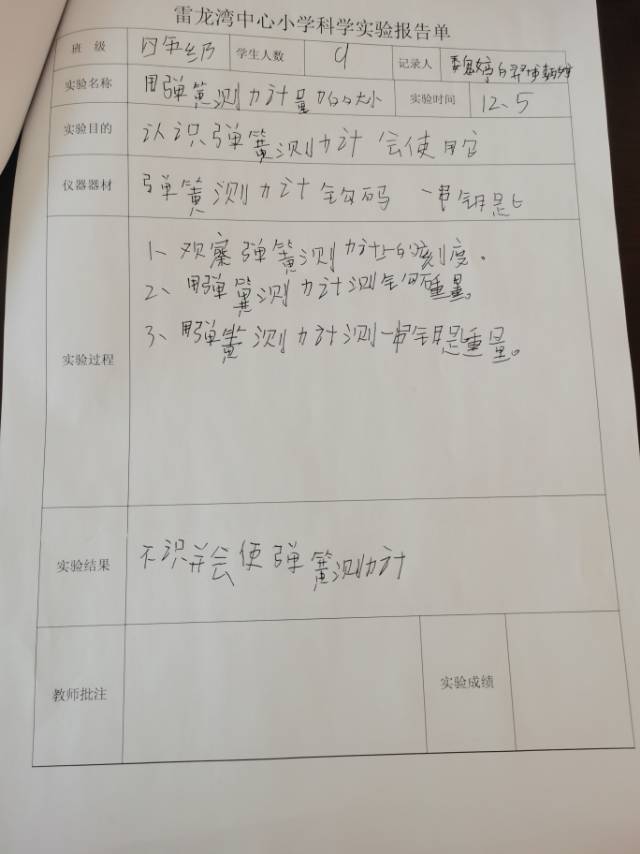 雷龙湾中心小学科学实验报告单
班 级 四年级 学生人数 9 记录人
实验名称 用弹簧测力计量力的大小 实验时间 12、5
实验目的 认识弹簧测力计 会使用它
仪器器材 弹簧测力计 钩码 一串钥匙
实验过程
1、观察弹簧测力计上的刻度。
2、用弹簧测力计测钩码重量。
3、用弹簧测力计测一串钥匙重量。
实验结果 识并会使弹簧测力计
教师批注 实验成绩